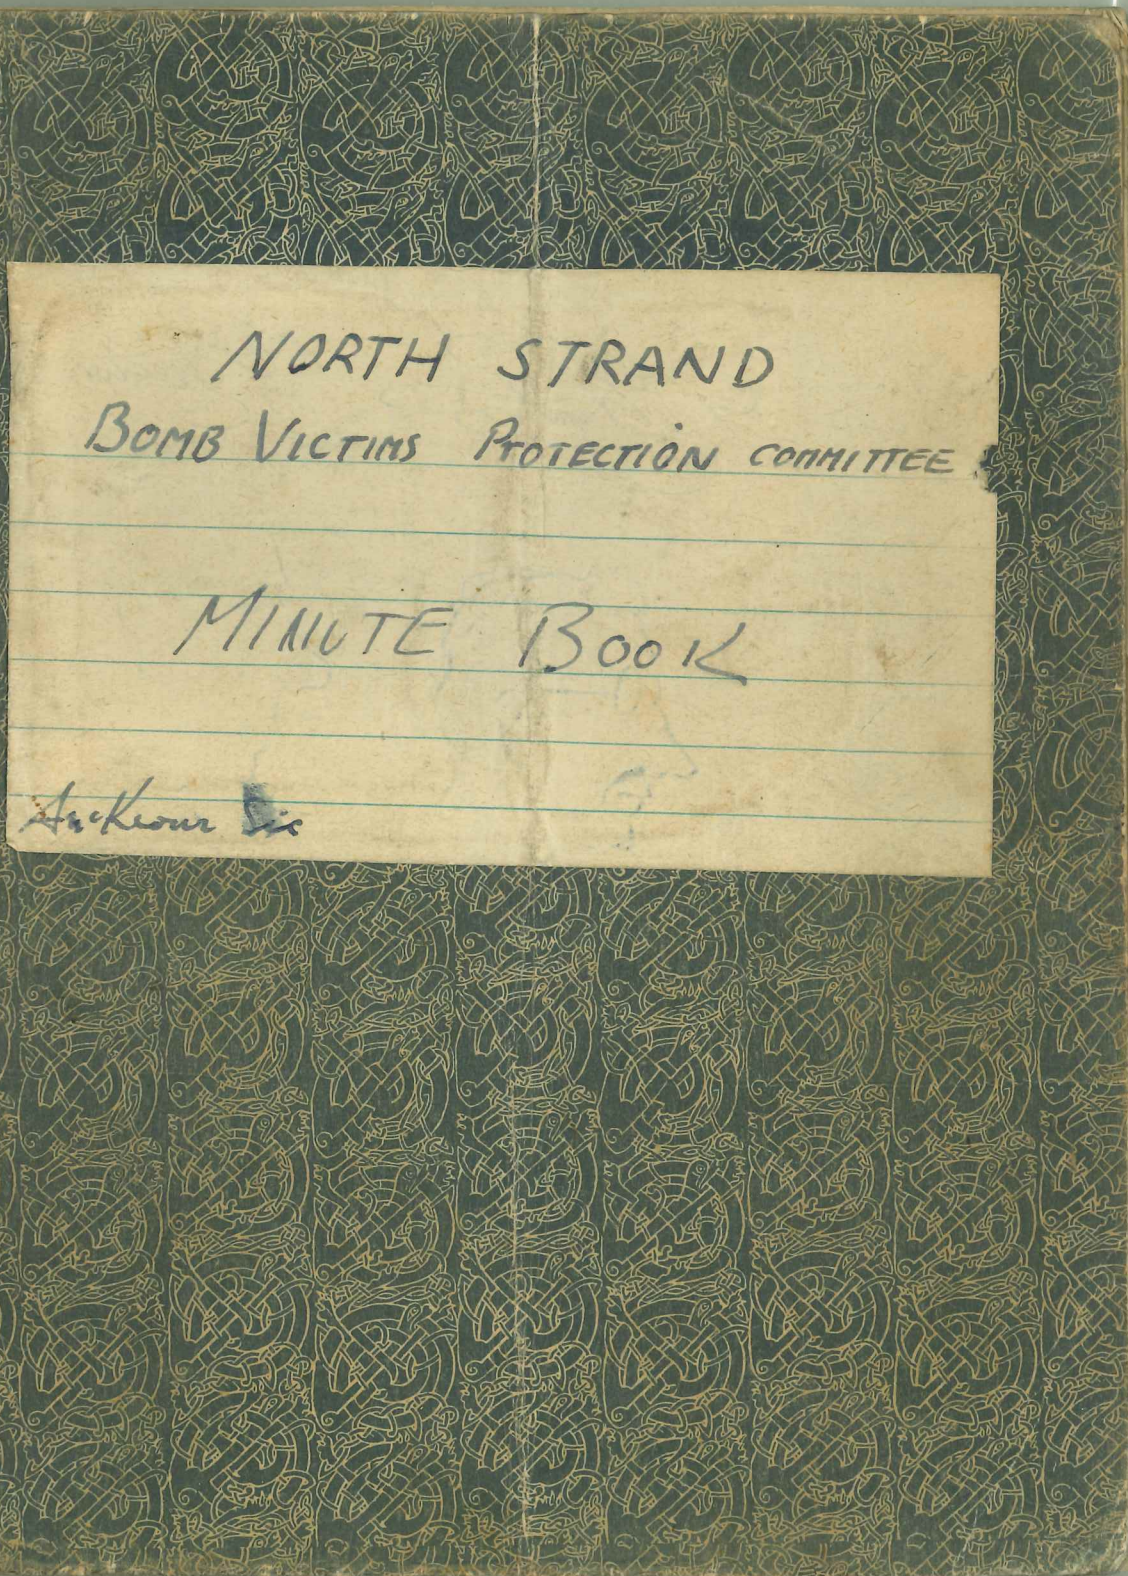 NORTH STRAND
BOMB VICTIMS PROTECTION COMMITTEE
MINUTE BOOK